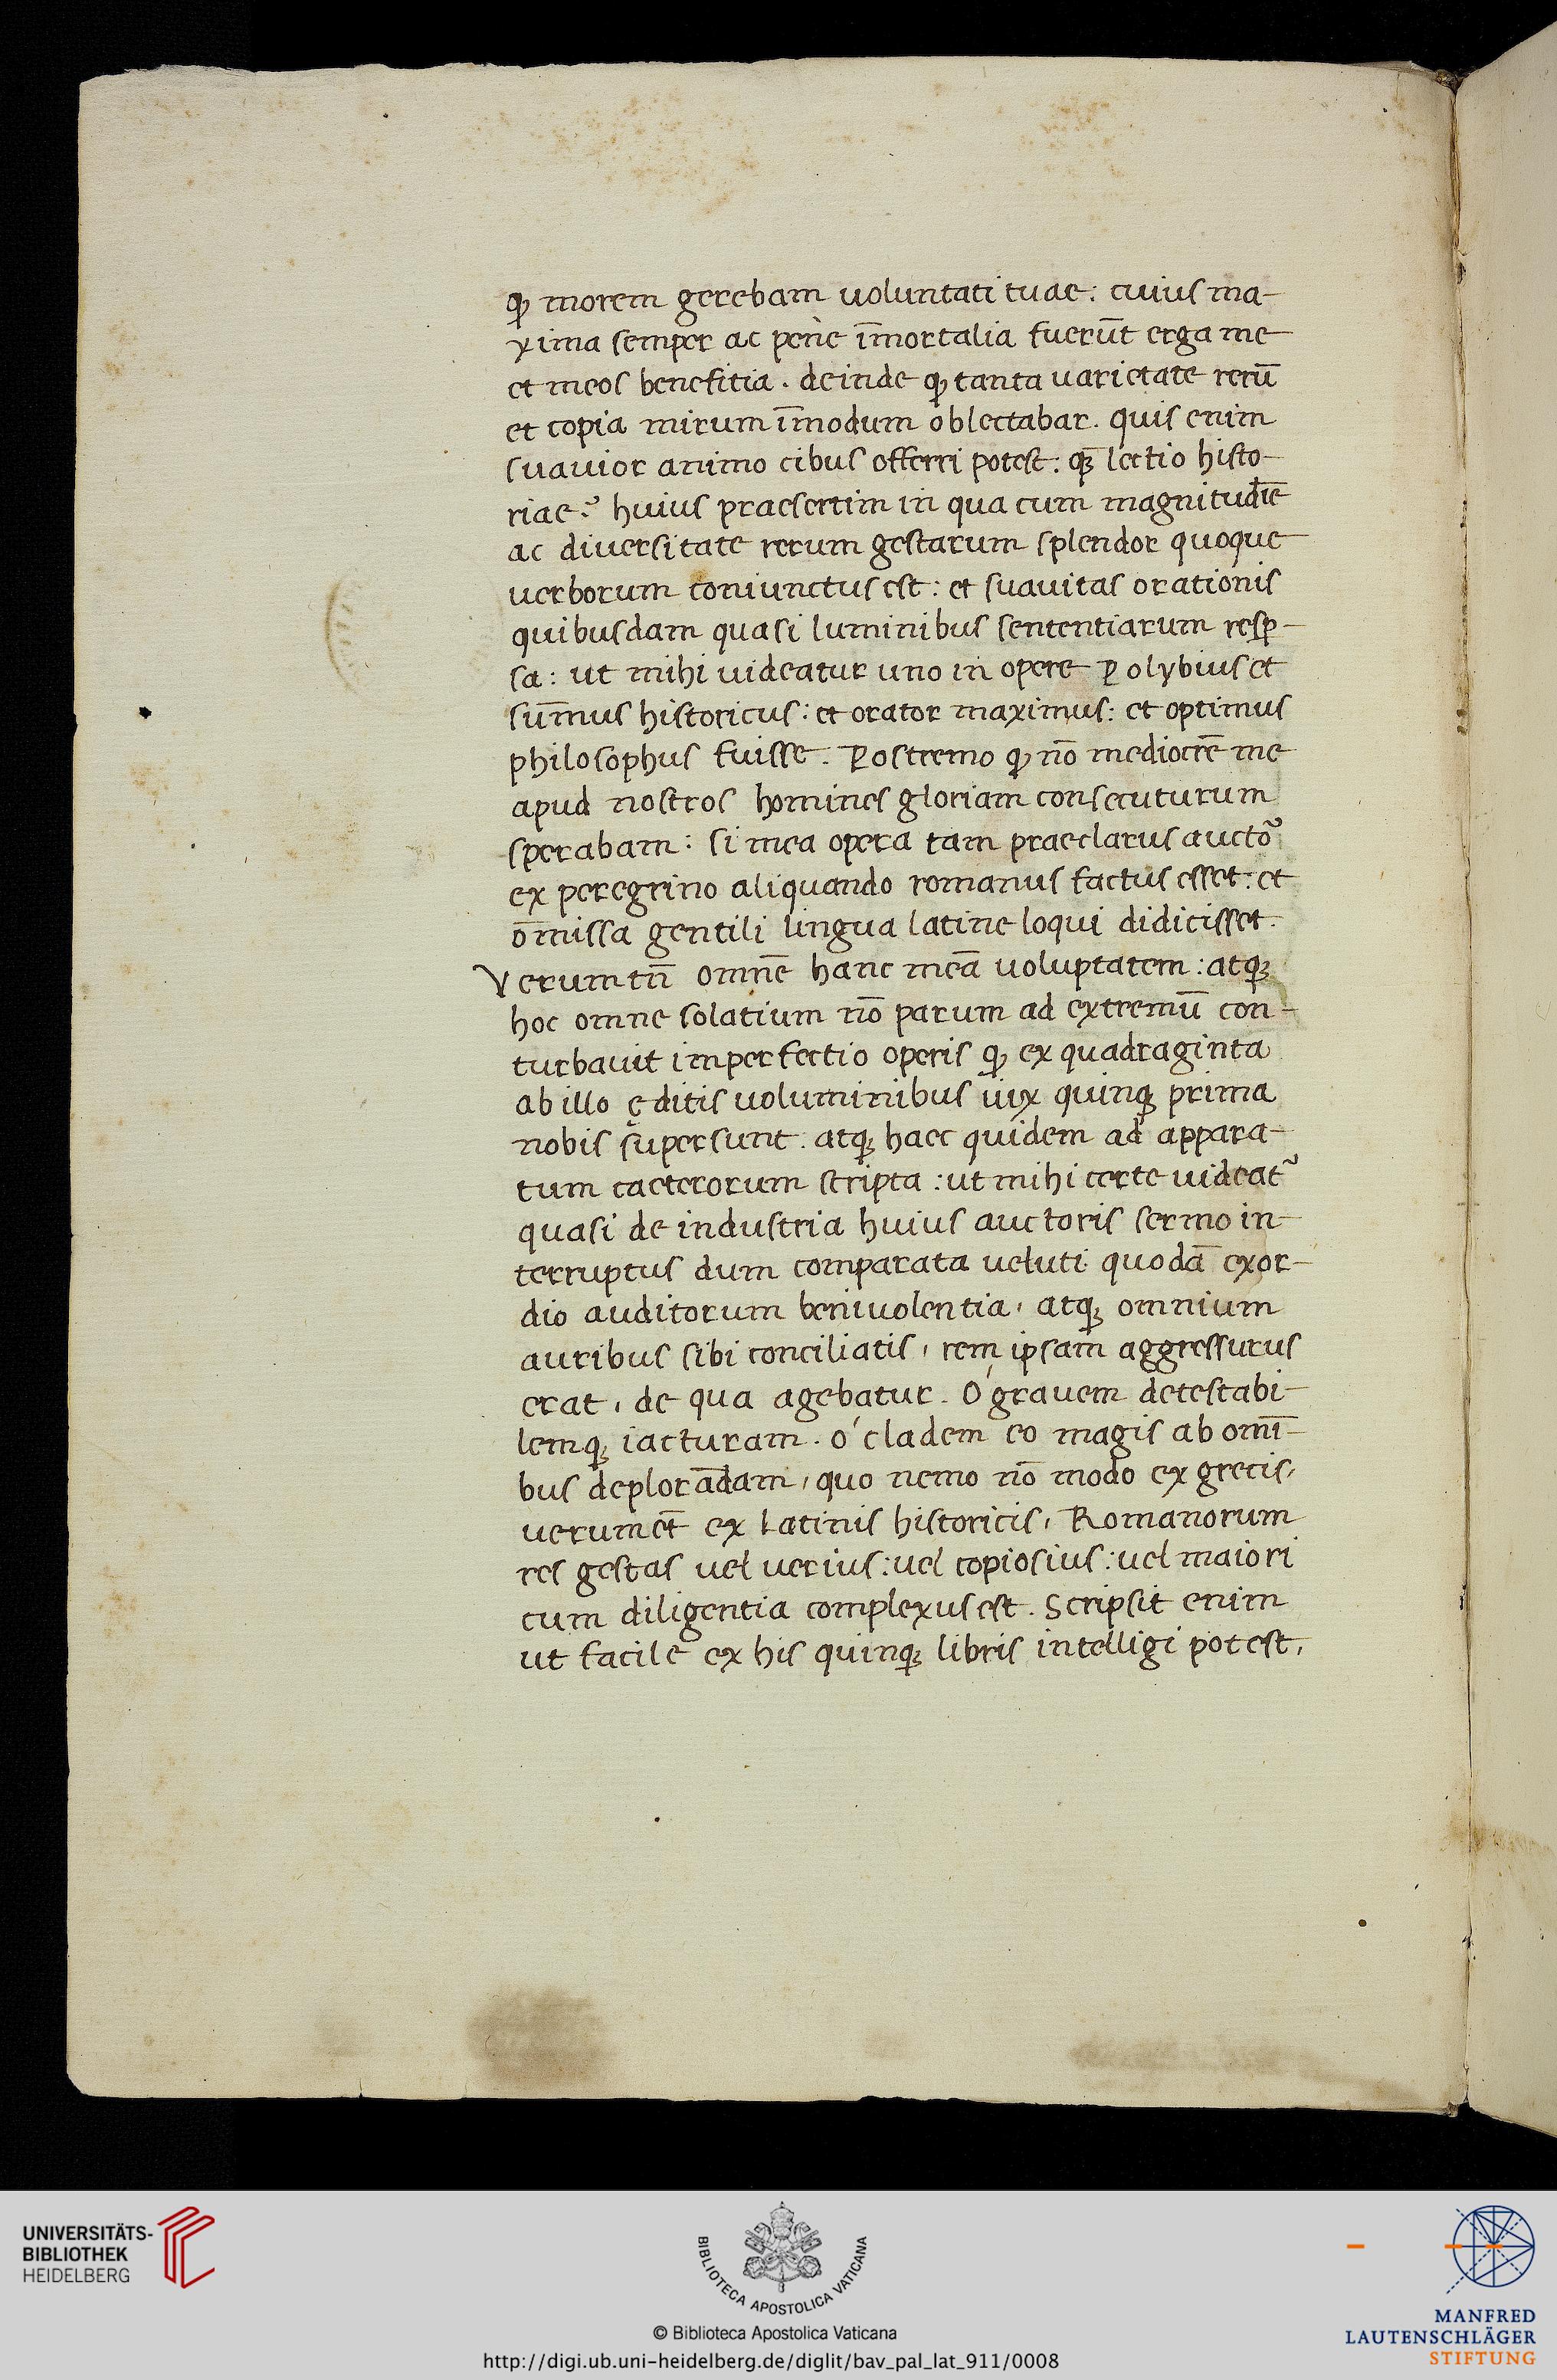 ꝙ morem gerebam uoluntati tuae: cuius ma-
xima semper ac pene īmortalia fuerūt erga me
et meos benefitia. deinde ꝙ tanta uarietate rerū
et copia mirum īmodum oblectabar. quis enim
suauior animo cibus offerri potest: qꝫ̄ lectio histo-
riae? huius praesertim in qua cum magnitudīe
ac diuersitate rerum gestarum splendor quoque
uerborum coniunctus est: et suauitas orationis
quibusdam quasi luminibus sententiarum resꝑ-
sa: ut mihi uideatur uno in opere Polybius et
sum̄us historicus: et orator maximus: et optimus
philosophus fuisse. Postremo ꝙ nō mediocrē me
apud nostros homines gloriam consecuturum
sperabam: si mea opera tam praeclarus auctoᷣ
ex peregrino aliquando romanus factus esset: et
omissa gentili lingua latine loqui didicisset.
Verumtn̄ omnē hanc meā uoluptatem: atqꝫ
hoc omne solatium nō parum ad extremū con-
turbauit imperfectio operis ꝙ ex quadraginta
ab illo ęditis uoluminibus uix quinqꝫ prima
nobis supersunt. atqꝫ haec quidem ad appara-
tum caeterorum scripta: ut mihi certe uideatᷣ
quasi de industria huius auctoris sermo in-
terruptus dum comparata ueluti quodā exor-
dio auditorum beniuolentia, atqꝫ omnium
auribus sibi conciliatis, rem ipsam aggressurus
erat, de qua agebatur. O´ grauem detestabi-
lemqꝫ iacturam. o´ cladem eo magis ab omī-
bus deplorādam, quo nemo nō modo ex grecis,
uerumet̄ ex Latinis historicis, Romanorum
res gestas uel uerius: uel copiosius: uel maiori
cum diligentia complexus est. Scripsit enim
ut facile ex his quinqꝫ libris intelligi potest,
UNIVERSITÄTS-
BIBLIOTHEK
HEIDELBERG
BIBLIOTECA APOSTOLICA VATICANA
© Biblioteca Apostolica Vaticana
http://digi.ub.uni-heidelberg.de/diglit/bav_pal_lat_911/0008
MANFRED
LAUTENSCHLÄGER
STIFTUNG